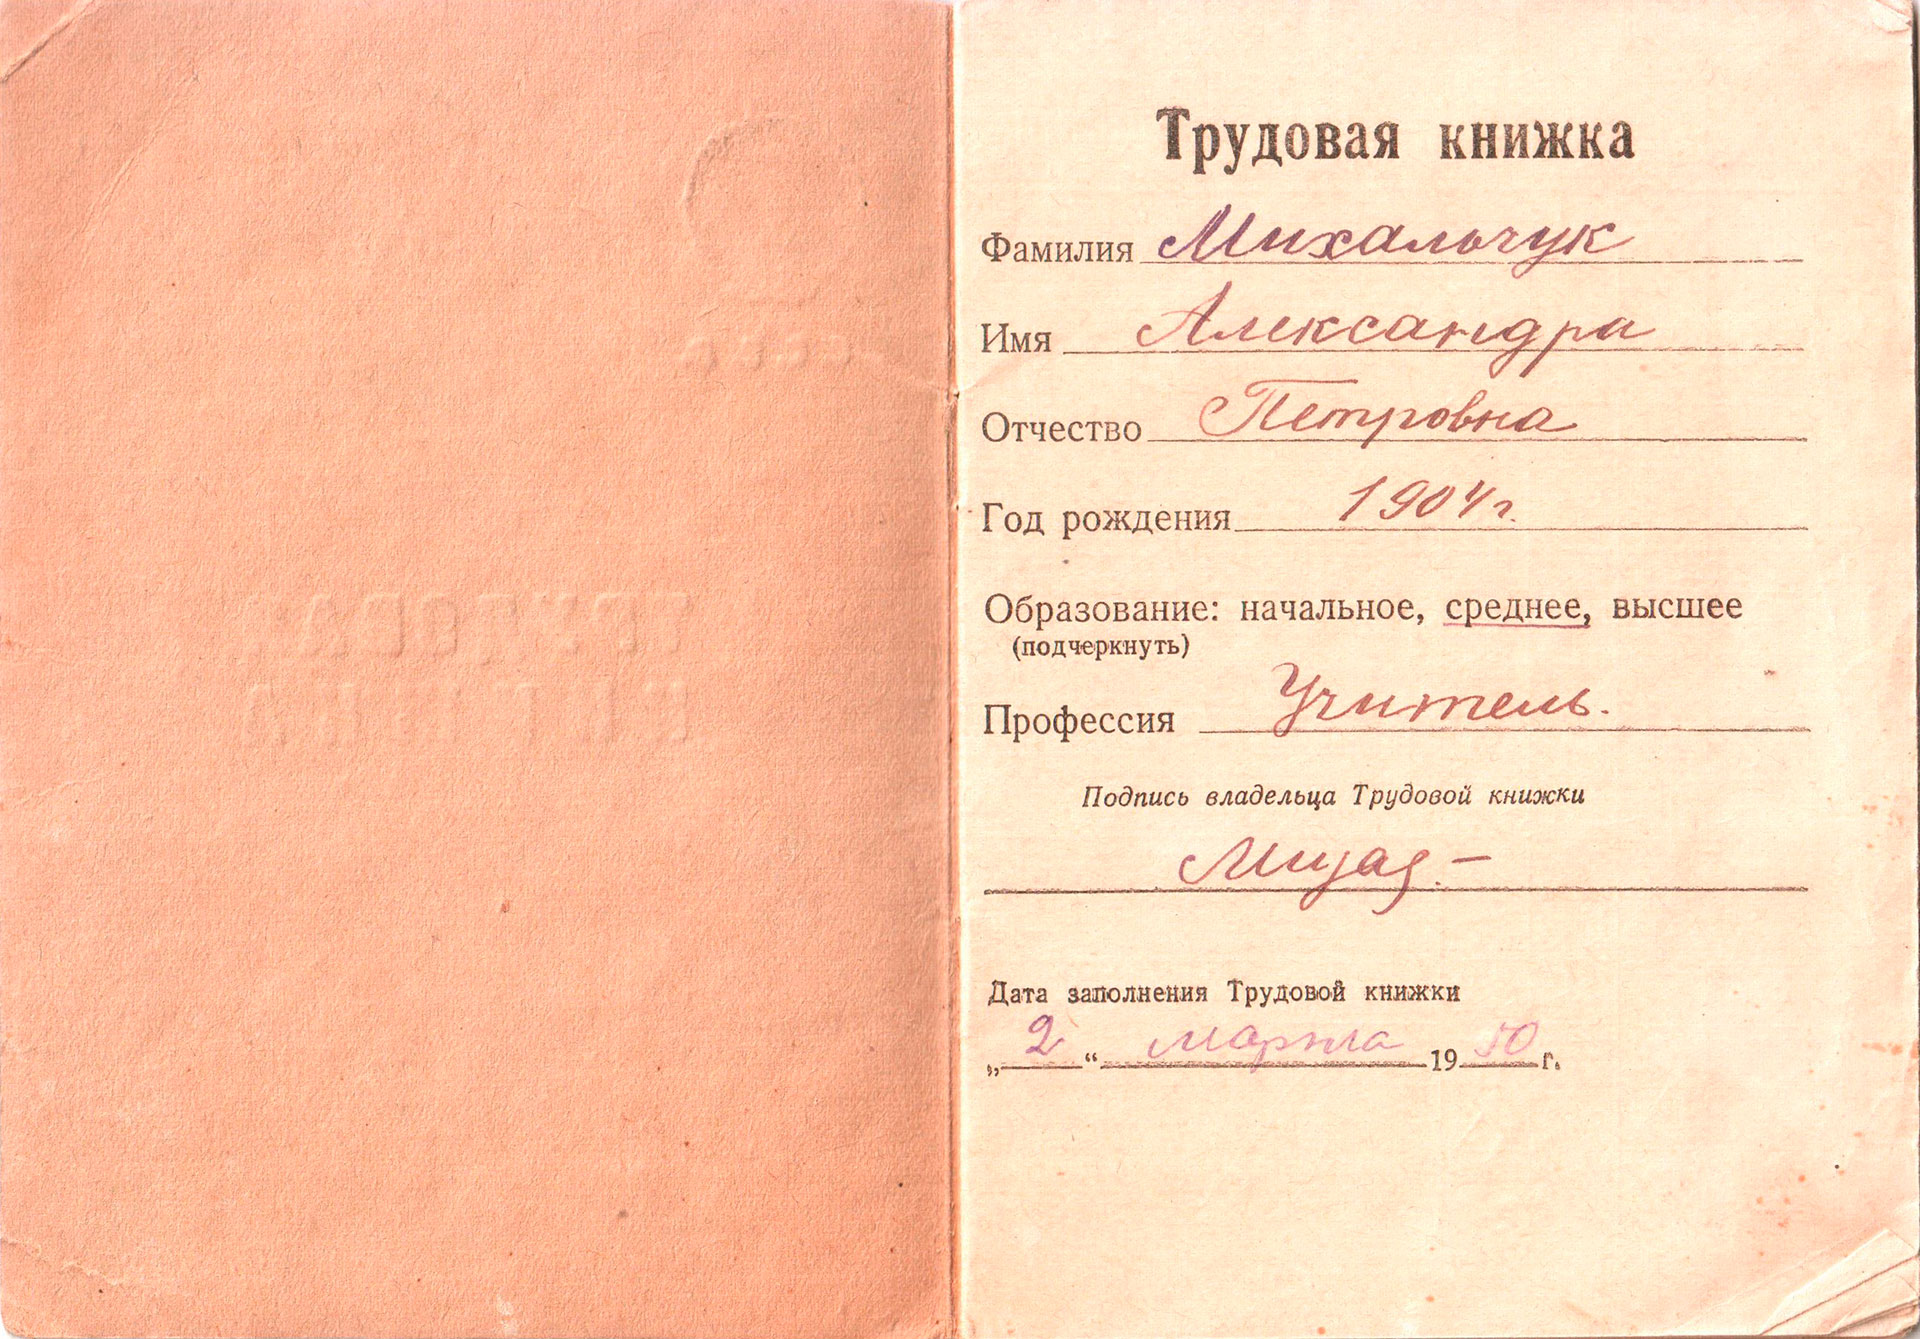 Трудовая книжка
Фамилия Михальчук
Имя Александра
Отчество Петровна
Год рождения 1904 г.
Образование: начальное, среднее, высшее
(подчеркнуть)
Профессия Учитель.
Подпись владельца Трудовой книжки
Дата заполнения Трудовой книжки
„2“ марта 1950 г.